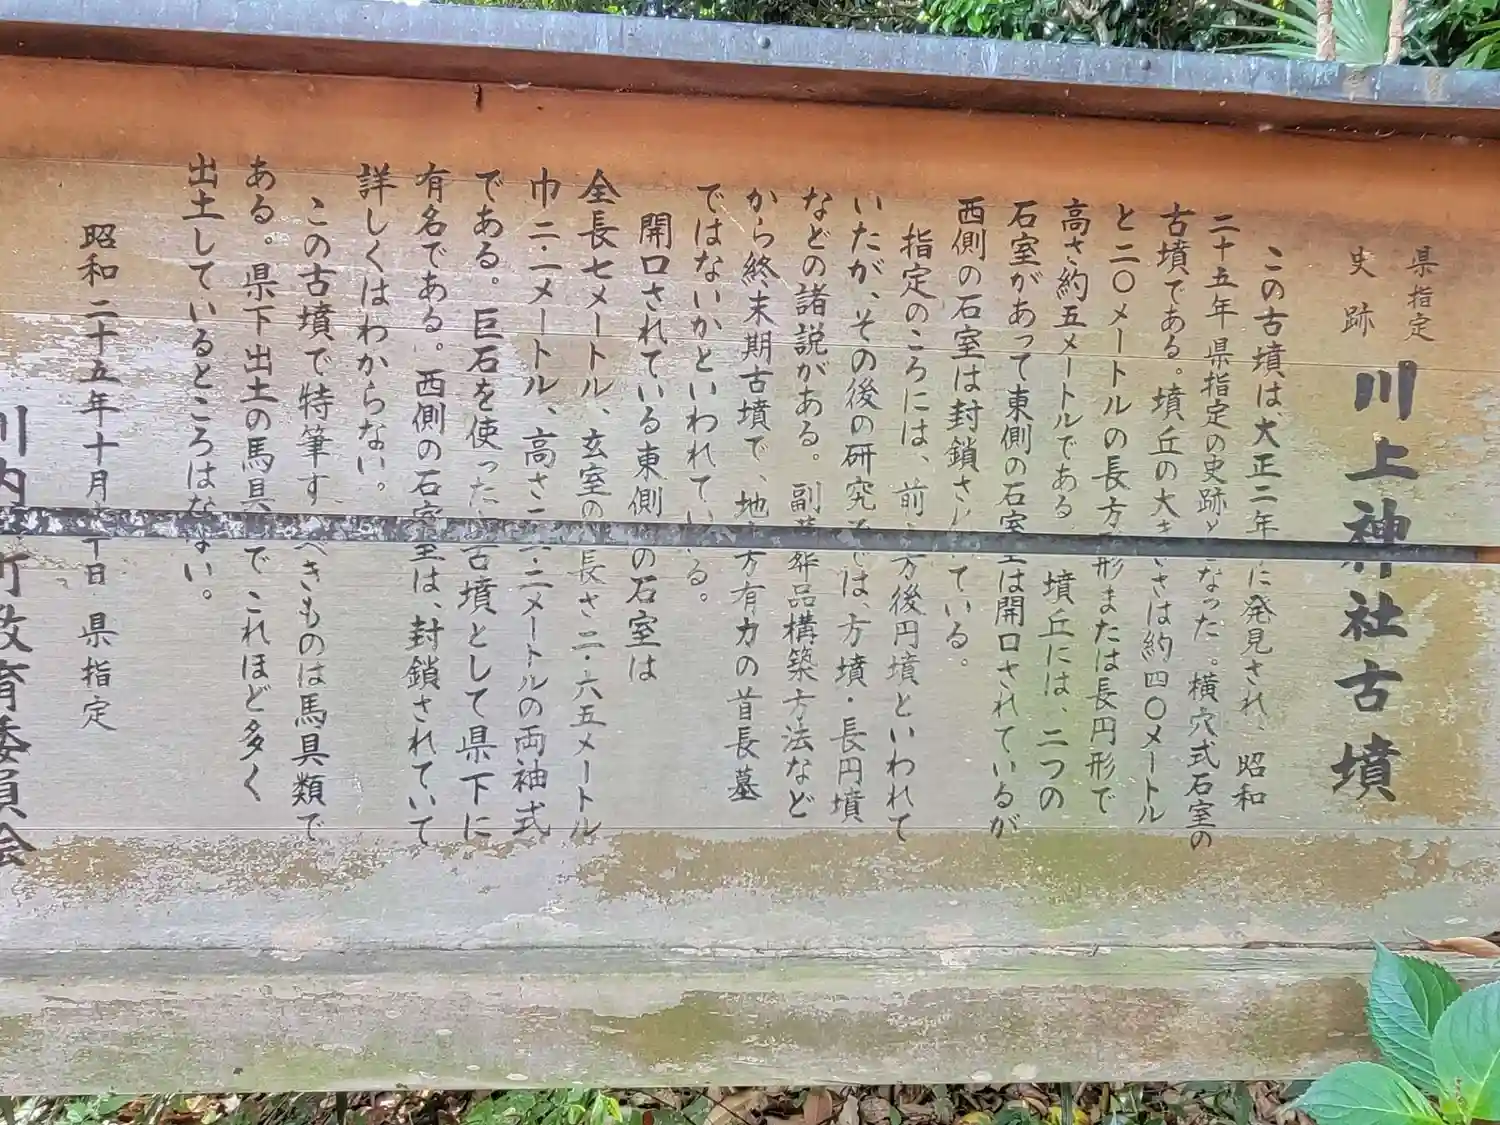 県指定
史跡
川上神社古墳
この古墳は、大正二年に発見され、昭和
二十五年県指定の史跡となった。横穴式石室の
古墳である。墳丘の大きさは約四〇メートル
と二〇メートルの長方形または長円形で
高さ約五メートルである 墳丘には、二つの
石室があって東側の石室は開口されているが
西側の石室は封鎖されている。
指定のころには、前方後円墳といわれて
いたが、その後の研究では、方墳・長円墳
などの諸説がある。副葬品構築方法など
から終末期古墳で、地方有力の首長墓
ではないかといわれている。
開口されている東側の石室は
全長七メートル、玄室の長さ二・六五メートル
巾二・一メートル、高さ二・二メートルの両袖式
である。巨石を使った古墳として県下に
有名である。西側の石室は、封鎖されていて
詳しくはわからない。
この古墳で特筆すべきものは馬具類で
ある。県下出土の馬具でこれほど多く
出土しているところはない。
昭和二十五年十月 日 県指定
川内町教育委員会